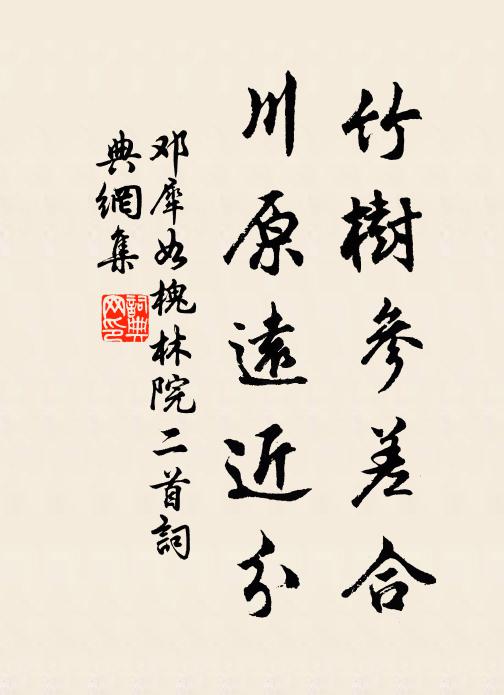 竹樹參差合
川原遠近分
邓犀如槐林院二首詞
典網集
詞典
网印